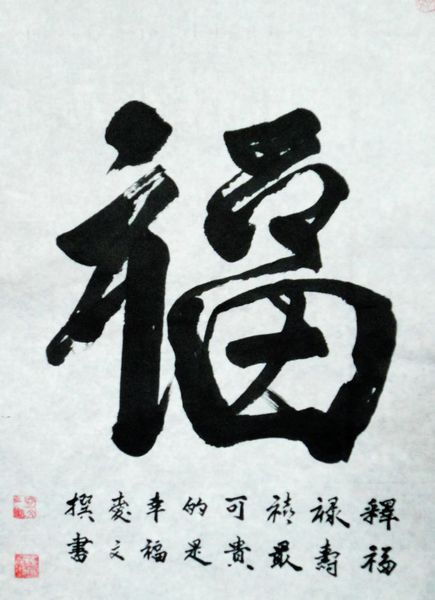 福
釋福
禄壽
禧最
可貴
的是
幸福
文
撰書